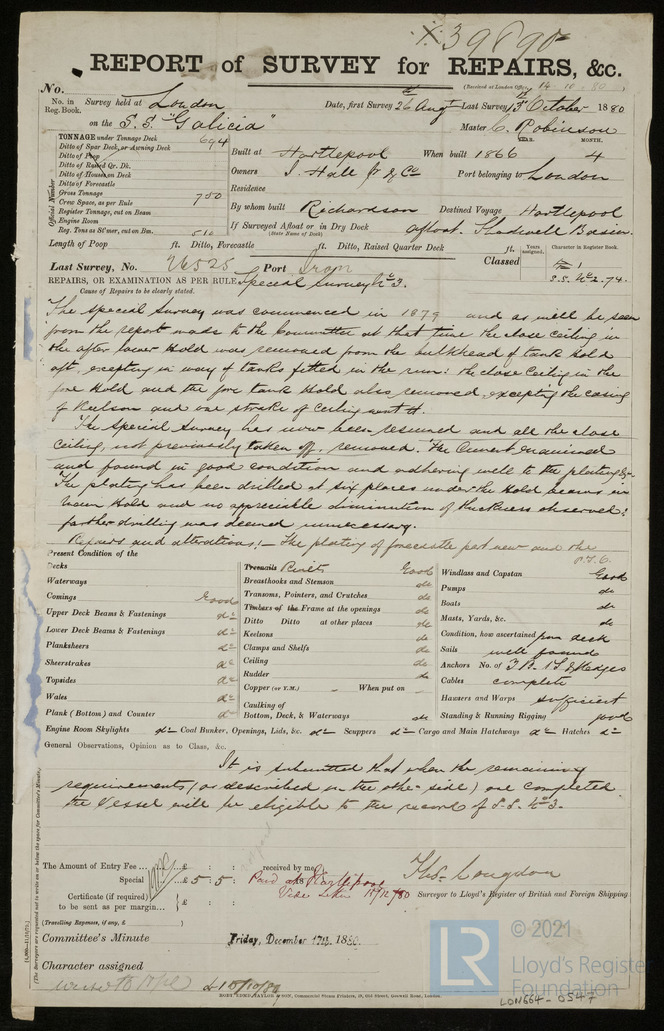 39890
REPORT of SURVEY for REPAIRS, &c.
(Received at London Office 14.10.80)
No.
No. in Reg. Book.
Survey held at London
Date, first Survey 26 Augt Last Survey 13th October 1880
on the S.S. "Galicia"
Master C. Robinson
TONNAGE under Tonnage Deck 694
Ditto of Spar Deck, or Awning Deck
Ditto of Poop
Ditto of Raised Qr. Dk.
Ditto of House on Deck
Ditto of Forecastle
Gross Tonnage 750
Crew Space, as per Rule
Register Tonnage, cut on Beam
Engine Room
Reg. Tons as St'mer, cut on Bm. 510
Official Number
YEAR. MONTH.
Built at Hartlepool When built 1866 4
Owners J. Hall Jr & Co Port belonging to London
Residence
By whom built Richardson Destined Voyage Hartlepool
If Surveyed Afloat or in Dry Dock afloat. Shadwell Basin.
(State Name of Dock.)
Length of Poop ft. Ditto, Forecastle ft. Ditto, Raised Quarter Deck ft.
Years assigned. Character in Register Book.
Last Survey, No. 26525 Port Iron
Classed S.S. No 2. 74.
REPAIRS, OR EXAMINATION AS PER RULE, Special Survey No 3.
Cause of Repairs to be clearly stated.
The Special Survey was commenced in 1879 and as will be seen
from the report made to the Committee at that time the close ceiling in
the after lower Hold was removed from the bulkhead of tank Hold
aft, excepting in way of tanks fitted in the run: the close ceiling in the
fore Hold and the fore tank Hold also removed, excepting the casing
of Keelson and one strake of ceiling next it.
The Special Survey has now been resumed and all the close
ceiling, not previously taken off, removed. The Cement examined
and found in good condition and adhering well to the plating &c.
The plating has been drilled at six places under the Hold beams in
main Hold and no appreciable diminution of thickness observed:
farther drilling was deemed unnecessary.
Repairs and alterations:— The plating of forecastle part new and the
P.T.O.
Present Condition of the
Decks
Waterways
Comings Good
Upper Deck Beams & Fastenings do
Lower Deck Beams & Fastenings do
Planksheers do
Sheerstrakes do
Topsides do
Wales do
Plank (Bottom) and Counter do
Engine Room Skylights do Coal Bunker, Openings, Lids, &c. do Scuppers do Cargo and Main Hatchways do Hatches do
Treenails Rivets Good
Breasthooks and Stemson do
Transoms, Pointers, and Crutches do
Timbers of the Frame at the openings do
Ditto Ditto at other places do
Keelsons do
Clamps and Shelfs do
Ceiling do
Rudder do
Copper (or Y.M.) When put on
Caulking of
Bottom, Deck, & Waterways do
Windlass and Capstan Good
Pumps do
Boats do
Masts, Yards, &c. do
Condition, how ascertained from deck
Sails well found
Anchors No. of 3 B. 1 S. & Kedges
Cables complete
Hawsers and Warps sufficient
Standing & Running Rigging good
General Observations, Opinion as to Class, &c.
It is submitted that when the remaining
requirements (as described on the other side) are completed
the Vessel will be eligible to the record of S.S. No 3.
The Amount of Entry Fee ... £ : : received by me,
Special ... £ 5 : 5 : Paid at Hartlepool
Vide Letter 15/12/80
Certificate (if required) to be sent as per margin...
(Travelling Expenses, if any, £ )
Thos. Congdon
Surveyor to Lloyd's Register of British and Foreign Shipping
Committee's Minute Friday, December 17th, 1880.
Character assigned
(The Surveyors are requested not to write on or below the space for Committee's Minute.)
LR
© 2021
Lloyd's Register
Foundation
LON664-0547